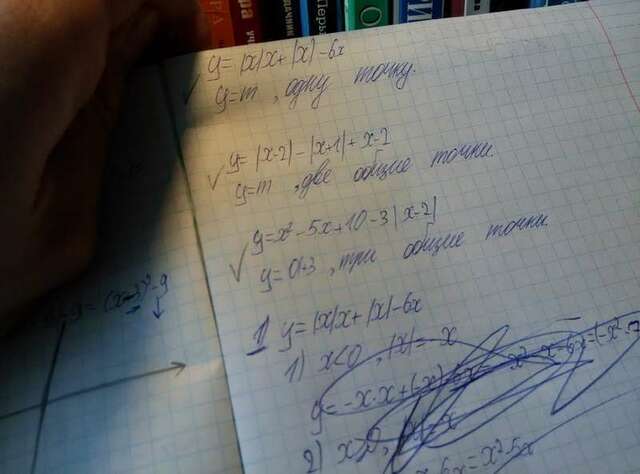 y=|x|x+|x|-6x
y=m, одну точку.
y=|x-2|-|x+1|+x-2
y=m, две общие точки.
y=x²-5x+10-3|x-2|
y=a+3, три общие точки.
1) y=|x|x+|x|-6x
1) x<0, |x|=-x
y=-x·x+(-x)
2) x≥0,
-6x=x²-5x
y=(x-3)²-9